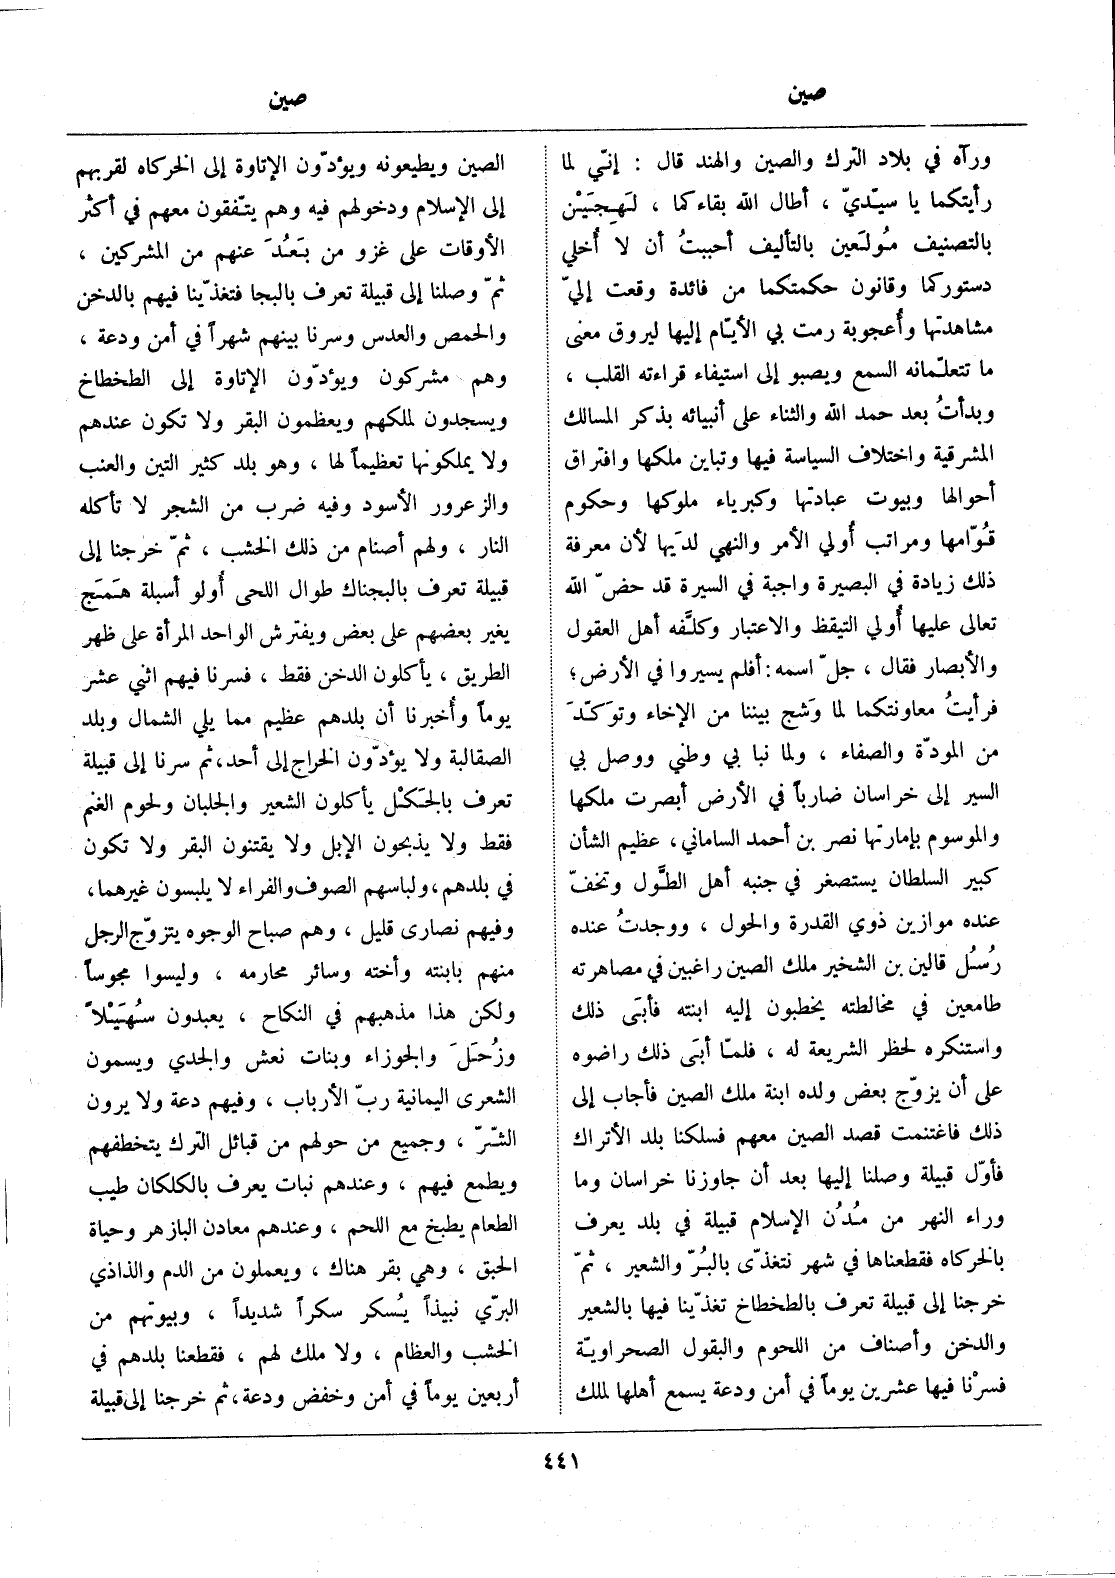 صين
صين
ورآه في بلاد الترك والصين والهند قال : إنّي لما
رأيتكما يا سيّديّ ، أطال الله بقاءكما ، لَهِجَيْن
بالتصنيف مُولَعين بالتأليف أحببتُ أن لا أُخلي
دستوركما وقانون حكمتكما من فائدة وقعت إليّ
مشاهدتها وأُعجوبة رمت بي الأيّام إليها ليروق معنى
ما تتعلّمانه السمع ويصبو إلى استيفاء قراءته القلب ،
وبدأتُ بعد حمد الله والثناء على أنبيائه بذكر المسالك
المشرقية واختلاف السياسة فيها وتباين ملكها وافتراق
أحوالها وبيوت عبادتها وكبرياء ملوكها وحكوم
قُوّامها ومراتب أُولي الأمر والنهي لدَيها لأن معرفة
ذلك زيادة في البصيرة واجبة في السيرة قد حضّ الله
تعالى عليها أُولي التيقظ والاعتبار وكلَّفه أهل العقول
والأبصار فقال ، جلّ اسمه : أفلم يسيروا في الأرض ؛
فرأيتُ معاونتكما لما وَشج بيننا من الإخاء وتوَكّدَ
من المودّة والصفاء ، ولما نبا بي وطني ووصل بي
السير إلى خراسان ضارباً في الأرض أبصرت ملكها
والموسوم بإمارتها نصر بن أحمد الساماني ، عظيم الشأن
كبير السلطان يستصغر في جنبه أهل الطَّول وتخفّ
عنده موازين ذوي القدرة والحول ، ووجدتُ عنده
رُسُل قالين بن الشخير ملك الصين راغبين في مصاهرته
طامعين في مخالطته يخطبون إليه ابنته فأبَى ذلك
واستنكره لحظر الشريعة له ، فلمّا أبَى ذلك راضوه
على أن يزوّج بعض ولده ابنة ملك الصين فأجاب إلى
ذلك فاغتنمت قصد الصين معهم فسلكنا بلد الأتراك
فأوّل قبيلة وصلنا إليها بعد أن جاوزنا خراسان وما
وراء النهر من مُدُن الإسلام قبيلة في بلد يعرف
بالخركاه فقطعناها في شهر نتغذّى بالبُرّ والشعير ، ثمّ
خرجنا إلى قبيلة تعرف بالطخطاخ تغذّينا فيها بالشعير
والدخن وأصناف من اللحوم والبقول الصحراويّة
فسرْنا فيها عشرين يوماً في أمن ودعة يسمع أهلها لملك
الصين ويطيعونه ويؤدّون الإتاوة إلى الخركاه لقربهم
إلى الإسلام ودخولهم فيه وهم يتّفقون معهم في أكثر
الأوقات على غزو من بَعُدَ عنهم من المشركين ،
ثمّ وصلنا إلى قبيلة تعرف بالبجا فتغذّينا فيهم بالدخن
والحمص والعدس وسرنا بينهم شهراً في أمن ودعة ،
وهم مشركون ويؤدّون الإتاوة إلى الطخطاخ
ويسجدون لملكهم ويعظمون البقر ولا تكون عندهم
ولا يملكونها تعظيماً لها ، وهو بلد كثير التين والعنب
والزعرور الأسود وفيه ضرب من الشجر لا تأكله
النار ، ولهم أصنام من ذلك الخشب ، ثمّ خرجنا إلى
قبيلة تعرف بالبجناك طوال اللحى أُولو أسبلة هَمَج
يغير بعضهم على بعض ويفترش الواحد المرأة على ظهر
الطريق ، يأكلون الدخن فقط ، فسرنا فيهم اثني عشر
يوماً وأُخبرنا أن بلدهم عظيم مما يلي الشمال وبلد
الصقالبة ولا يؤدّون الخراج إلى أحد، ثم سرنا إلى قبيلة
تعرف بالجَكْل يأكلون الشعير والجلبان ولحوم الغنم
فقط ولا يذبحون الإبل ولا يقتنون البقر ولا تكون
في بلدهم، ولباسهم الصوف والفراء لا يلبسون غيرهما،
وفيهم نصارى قليل ، وهم صباح الوجوه يتزوّج الرجل
منهم بابنته وأخته وسائر محارمه ، وليسوا مجوساً
ولكن هذا مذهبهم في النكاح ، يعبدون سُهَيْلاً
وزُحَلَ والجوزاء وبنات نعش والجدي ويسمون
الشعرى اليمانية ربّ الأرباب ، وفيهم دعة ولا يرون
الشّرّ ، وجميع من حولهم من قبائل الترك يتخطفهم
ويطمع فيهم ، وعندهم نبات يعرف بالكلكان طيب
الطعام يطبخ مع اللحم ، وعندهم معادن البازهر وحياة
الحبق ، وهي بقر هناك ، ويعملون من الدم والذاذي
البرّي نبيذاً يُسكر سكراً شديداً ، وبيوتهم من
الخشب والعظام ، ولا ملك لهم ، فقطعنا بلدهم في
أربعين يوماً في أمن وخفض ودعة، ثم خرجنا إلى قبيلة
٤٤١